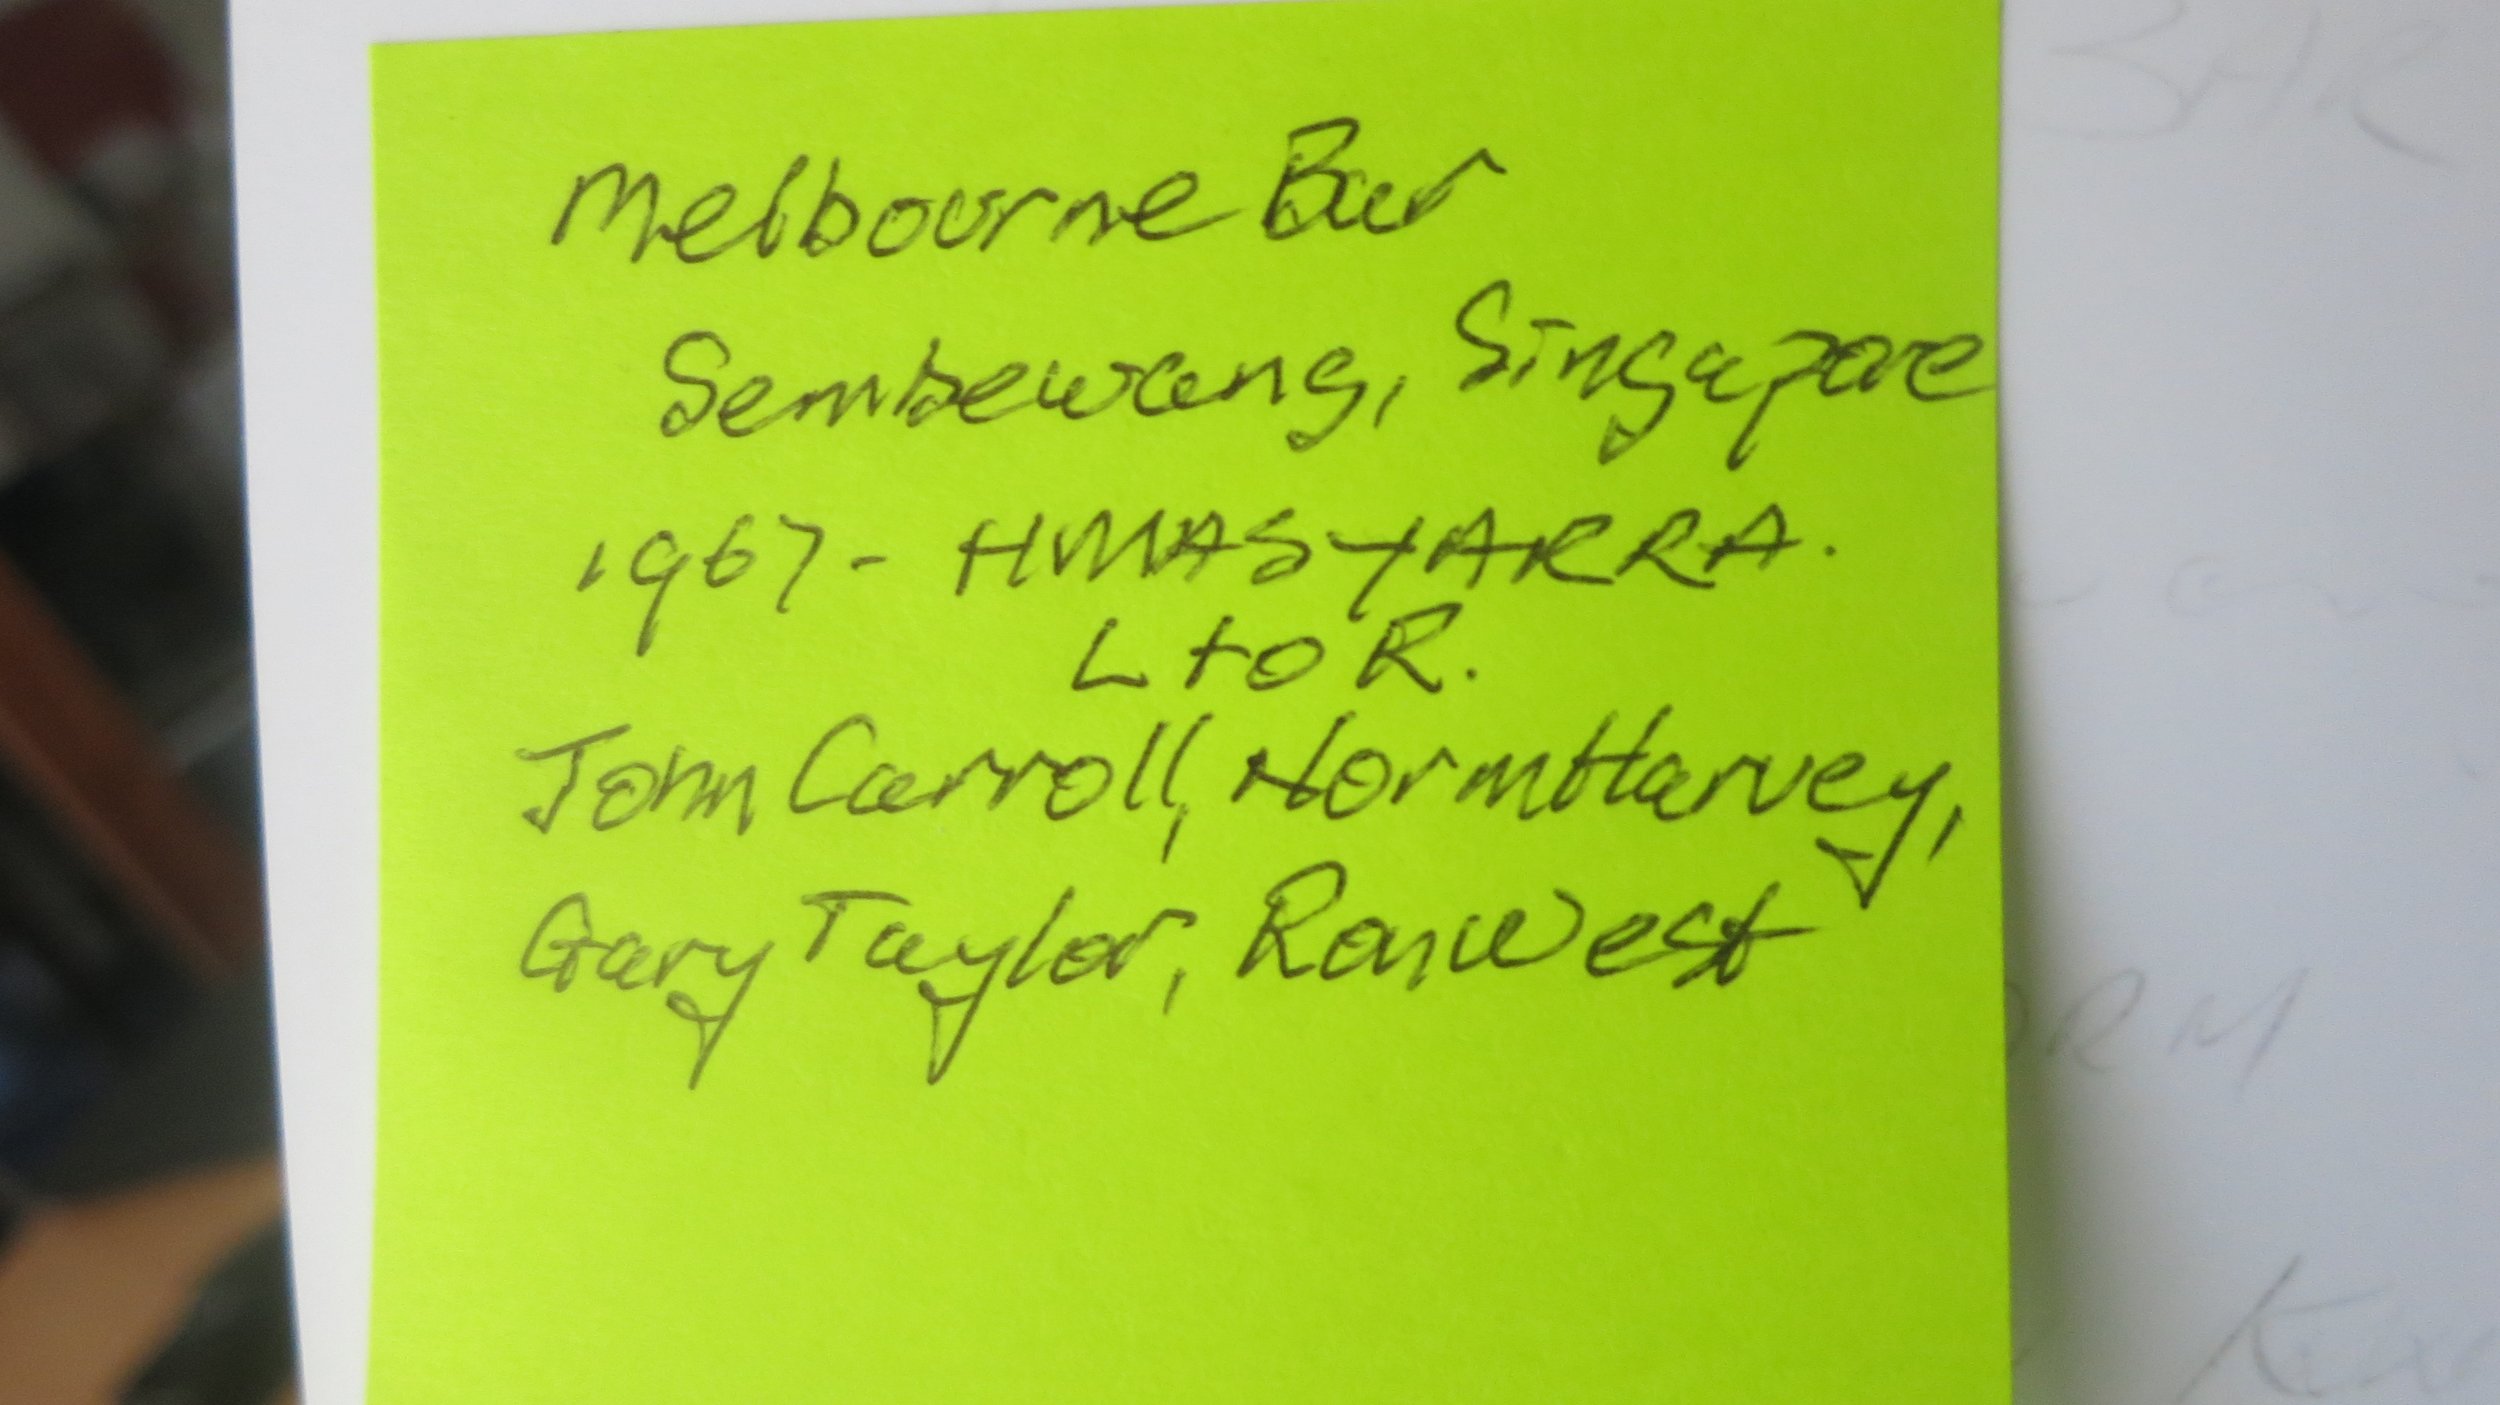 Melbourne Bar
Sembewang, Singapore
1967 - HMAS YARRA.
L to R.
John Carroll, Norm Harvey,
Gary Taylor, Ron West